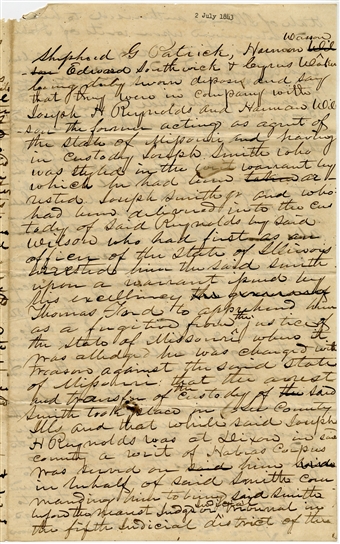 2 July 1843
Wasson
Shepherd G Patrick, Harmon Wil
son Edward Southwick & Cyrus Walker
being duly sworn depose and say
that they were in company with
Joseph H Reynolds and Harman Wil
son the former acting as agent of
the state of Missouri and having
in custody Joseph Smith who
was styled in the warrant by
which he had been taken ar
rested Joseph Smith Jr and who
had been delivered into the cus
tody of said Reynolds by said
Wilson who had first as an
officer of the State of Illinois
arrested him the said Smith
upon a warrant issued by
his excellency the governor of
Thomas Ford to apprehend him
as a fugitive from the justice of
the state of Missouri where it
was alledged he was charged with
treason against the said State
of Missouri: that the arrest
and transfer of the custody of the said
Smith took place in Lee County
Ills and that while said Joseph
H Reynolds was at Dixon in said
county a writ of Habeas Corpus
was served on said him
in behalf of said Smith com
manding him to bring said Smith
before the nearest Judge Judicial tribunal in
the fifth Judicial district of the